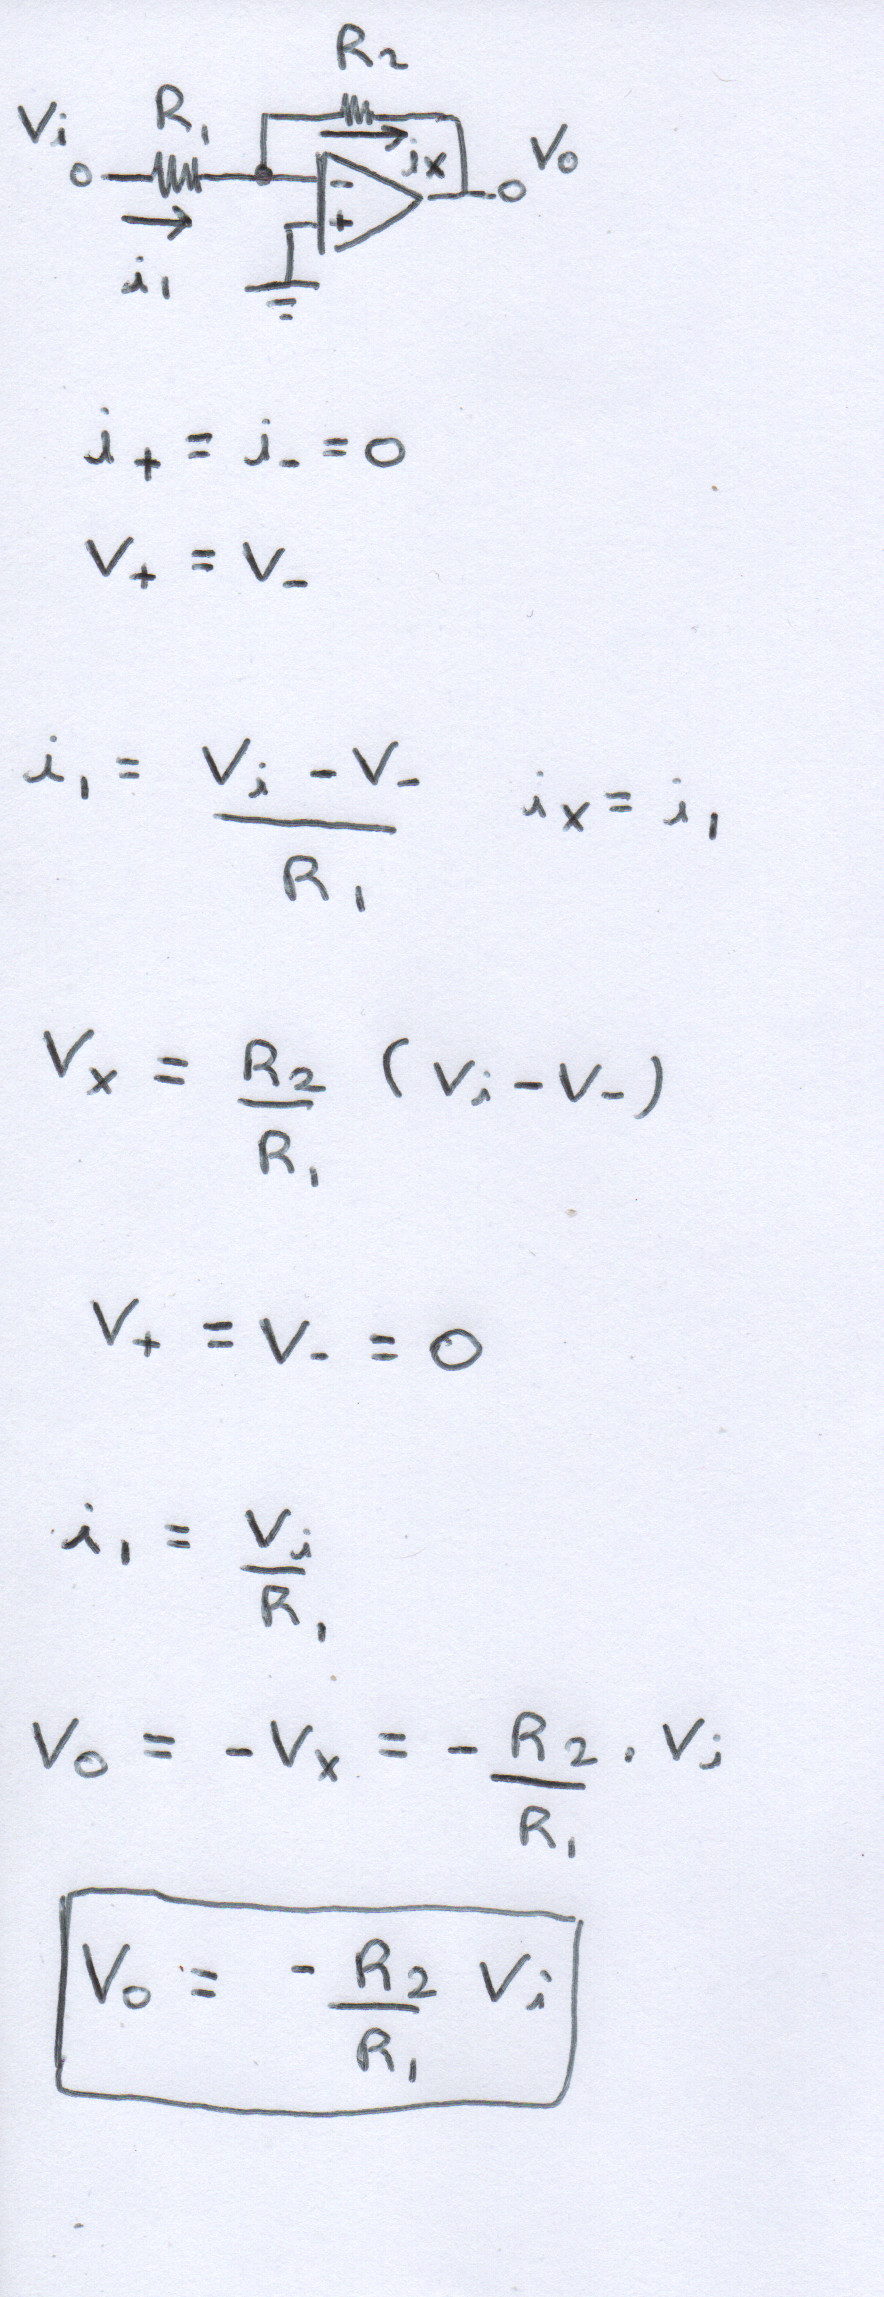 R₂
Vi R₁
ix Vo
-
+
i₁
i₊ = i₋ = 0
V₊ = V₋
i₁ = (Vi - V₋) / R₁ ix = i₁
Vx = R₂/R₁ (Vi - V₋)
V₊ = V₋ = 0
i₁ = Vi/R₁
Vo = -Vx = - R₂/R₁ . Vi
Vo = - R₂/R₁ Vi